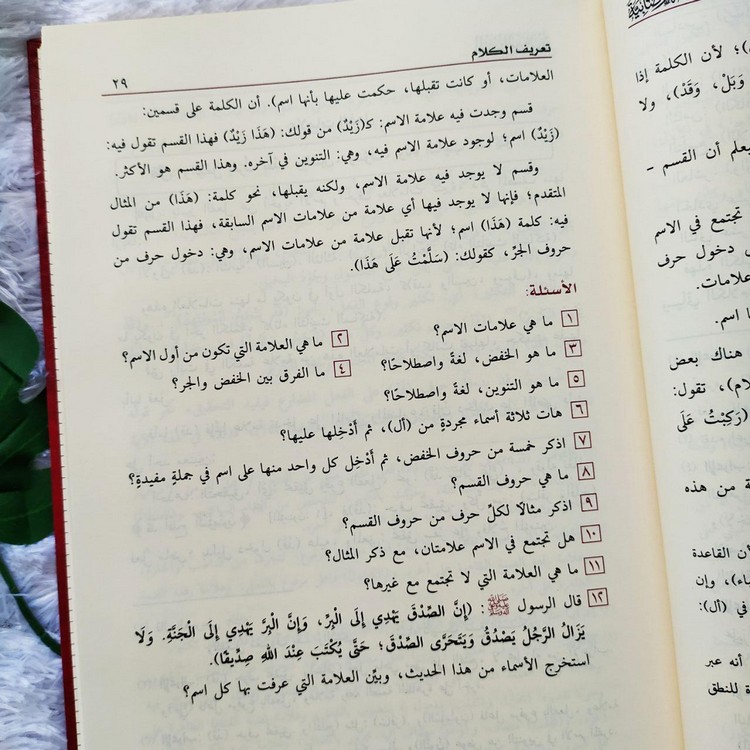 تعريف الكلام
٢٩
العلامات، أو كانت تقبلها، حكمت عليها بأنها اسم). أن الكلمة على قسمين:
قسم وجدت فيه علامة الاسم: كـ(زَيْدٌ) من قولك: (هَذَا زَيْدٌ) فهذا القسم تقول فيه:
(زَيْدٌ) اسم؛ لوجود علامة الاسم فيه، وهي: التنوين في آخره. وهذا القسم هو الأكثر.
وقسم لا يوجد فيه علامة الاسم، ولكنه يقبلها، نحو كلمة: (هَذَا) من المثال
المتقدم؛ فإنها لا يوجد فيها أي علامة من علامات الاسم السابقة، فهذا القسم تقول
فيه: كلمة (هَذَا) اسم؛ لأنها تقبل علامة من علامات الاسم، وهي: دخول حرف من
حروف الجرِّ، كقولك: (سَلَّمْتُ عَلَى هَذَا).
الأسئلة:
١ ما هي علامات الاسم؟
٢ ما هي العلامة التي تكون من أول الاسم؟
٣ ما هو الخفض، لغةً واصطلاحًا؟
٤ ما الفرق بين الخفض والجر؟
٥ ما هو التنوين، لغةً واصطلاحًا؟
٦ هات ثلاثة أسماء مجردةٍ من (أل)، ثم أَدْخِلها عليها؟
٧ اذكر خمسة من حروف الخفض، ثم أَدْخِل كل واحد منها على اسم في جملةٍ مفيدةٍ؟
٨ ما هي حروف القسم؟
٩ اذكر مثالًا لكلِّ حرف من حروف القسم؟
١٠ هل تجتمع في الاسم علامتان، مع ذكر المثال؟
١١ ما هي العلامة التي لا تجتمع مع غيرها؟
١٢ قال الرسول ﷺ: (إِنَّ الصِّدْقَ يَهْدِي إِلَى الْبِرِّ، وَإِنَّ الْبِرَّ يَهْدِي إِلَى الْجَنَّةِ. وَلَا
يَزَالُ الرَّجُلُ يَصْدُقُ وَيَتَحَرَّى الصِّدْقَ؛ حَتَّى يُكْتَبَ عِنْدَ اللهِ صِدِّيقًا).
استخرج الأسماء من هذا الحديث، وبيِّن العلامة التي عرفت بها كل اسم؟
؛ لأن الكلمة إذا
وَبَلْ، وَقَدْ)، ولا
يعلم أن القسم -
تجتمع في الاسم
دخول حرف
علامات.
اسم.
هناك بعض
تقول:
(رَكِبْتُ عَلَى
من هذه
أن القاعدة
وإن
في (أل):
أنه عبر
للنطق